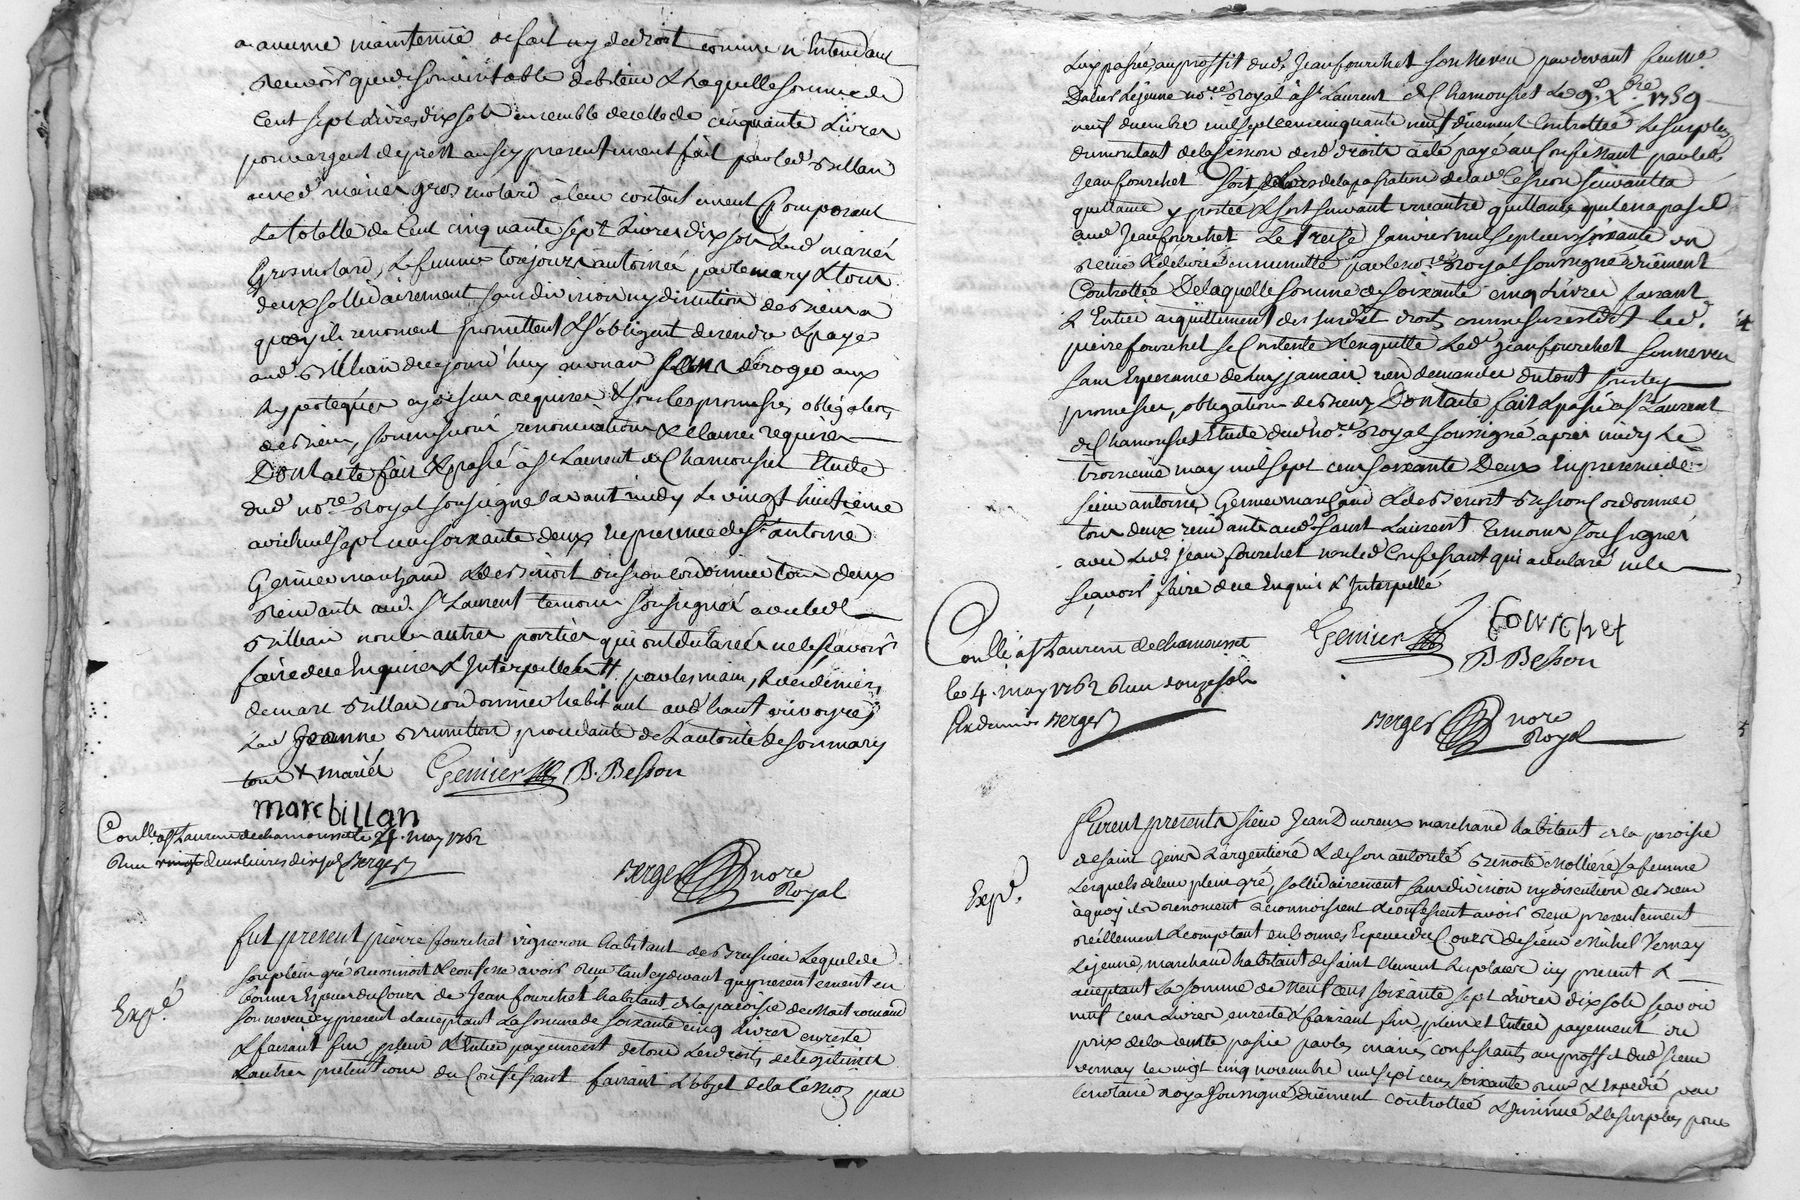 maintenüe de fait ny de droit comme n'Entendant
debiteur & Laquelle somme de
Cent sept Livres dix sols ensemble de celle de cinquante Livres
pour argent de prest aussy presentement fait par led Billan
aux d mariés gros molard à leur contentement Composant
La totalle de Cent cinquante sept Livres dix sols Lesd mariés
Grosmolard, La femme toujours autorisée par le mary & tous
deux sollidairement sans division ny discution de biens a
quoy ils renoncent promettent & s'obligent de rendre & paye
aud Billian sans déroger aux
hypoteques & sous les promesses, obligations
de biens, soumissions renonciations & clauses requises
Dont acte fait & passé à St Laurent de Chamousset Etude
dud nore Royal soussigné avant midy Le vingt huitieme
avril mil sept cent soixante deux En presence de Sr antoine
Genier marchand & de Benoit Besson cordonnier tous deux
residants aud St Laurent temoins soussignés avec led
Billian non les autres parties qui ont declarées ne le sçavoir
faire de ce Enquises & Interpellés # par les mains, & deniers
de marc Billan cordonnier habitant aud haut rivoyre,
Lad Jeanne procedante de L'autorité de son mary
tous & mariés Genier B. Besson
marcbillan
Conllé à St Laurent de chamousset le 4 may 1762
Reçu vingt deux livres dix sols Berger
Berger nore
Royal
fut present pierre fourchet vigneron habitant de Brussieu Lequel de
son plein gré Reconnoit & confesse avoir Reçu tant cy devant que presentement en
bonnes Especes du Cours de Jean fourchet habitant de la paroisse de montromand
son neveu cy present & acceptant La somme de soixante cinq Livres en reste
& faisant fin plein & Entier payement de tous les droits de legitime
& autres pretentions du Confessant faisant L'objet de la Cession par
Expé.
Luy passée au proffit dud. Jean fourchet son Neveu par devant feu me
Dalier Lejeune nore Royal à St Laurent de Chamousset Le 9e Xbre 1759
neuf decembre mil sept cent cinquante neuf düement Controllée Le surplus
du montant de la Cession desd droits a été payé au Confessant par led
Jean fourchet soit lors de la passation de lad Cession suivant la
quittance y portée & soit suivant une autre quittance qu'il en a passé
aud Jean fourchet Le treize Janvier mil sept cent soixante un
Reçuë & delivrée en minutte par le nore Royal soussigné düement
Controllée De laquelle somme de soixante cinq Livres faisant
L'Entier acquittement des susd et droits comme sus est dit led.
pierre fourchet se Contente & en quitte Led Jean fourchet son neveu
sans Esperance de luy jamais rien demander du tout sous les
promesses, obligation de biens, Dont acte fait & passé à St Laurent
de Chamousset Etude dud nore Royal soussigné après midy Le
troisieme may mil sept cent soixante Deux En presence de
sieur antoine Genier marchand & de Benoit Besson Cordonnier
tous deux residants aud Saint Laurent temoins soussignés
avec Led. jean fourchet non led Confessant qui a declaré ne le
sçavoir faire de ce Enquis & Interpellé
Genier fourchet
B Besson
Conllé à St Laurent de chamousset
le 4 may 1762 Reçu douze sols
Berger
Berger nore
Royal
Expé.
Furent presents sieur Jean Ducreux marchand habitant de la paroisse
de saint Genis L'argentiere & de son autorité Benoite Mollière sa femme
Lesquels de leur plein gré, sollidairement sans division ny discution de biens
à quoy ils Renoncent Reconnoissent & confessent avoir Reçu presentement
réellement & comptant en bonnes Especes du Cours de sieur Michel Vernay
Lejeune, marchand habitant de saint Clement Les places icy present &
acceptant La somme de Neuf cens soixante sept Livres dix sols sçavoir
neuf cens Livres, en reste & faisant fin, plein et Entier payement du
prix de la vente passée par les mariés confessants, au proffit dud sieur
vernay le vingt cinq novembre mil sept cens soixante Reçuë & Expedié par
le notaire royal soussigné, düement controllée & Insinué & le surplus pour